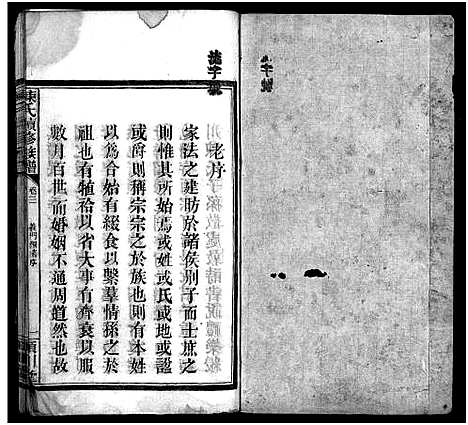 老序
家法之建昉於諸侯別子而士庶之
則惟其所始焉或姓或氏或地或諡
或爵則稱宗宗之於族也則有本姓
以為合始有綴食以繫羣情孫之於
祖也有犆祫以省大事有齊衰以服
數月百世而婚姻不通周道然也故
陳氏續修族譜
卷二
義門
序
字號